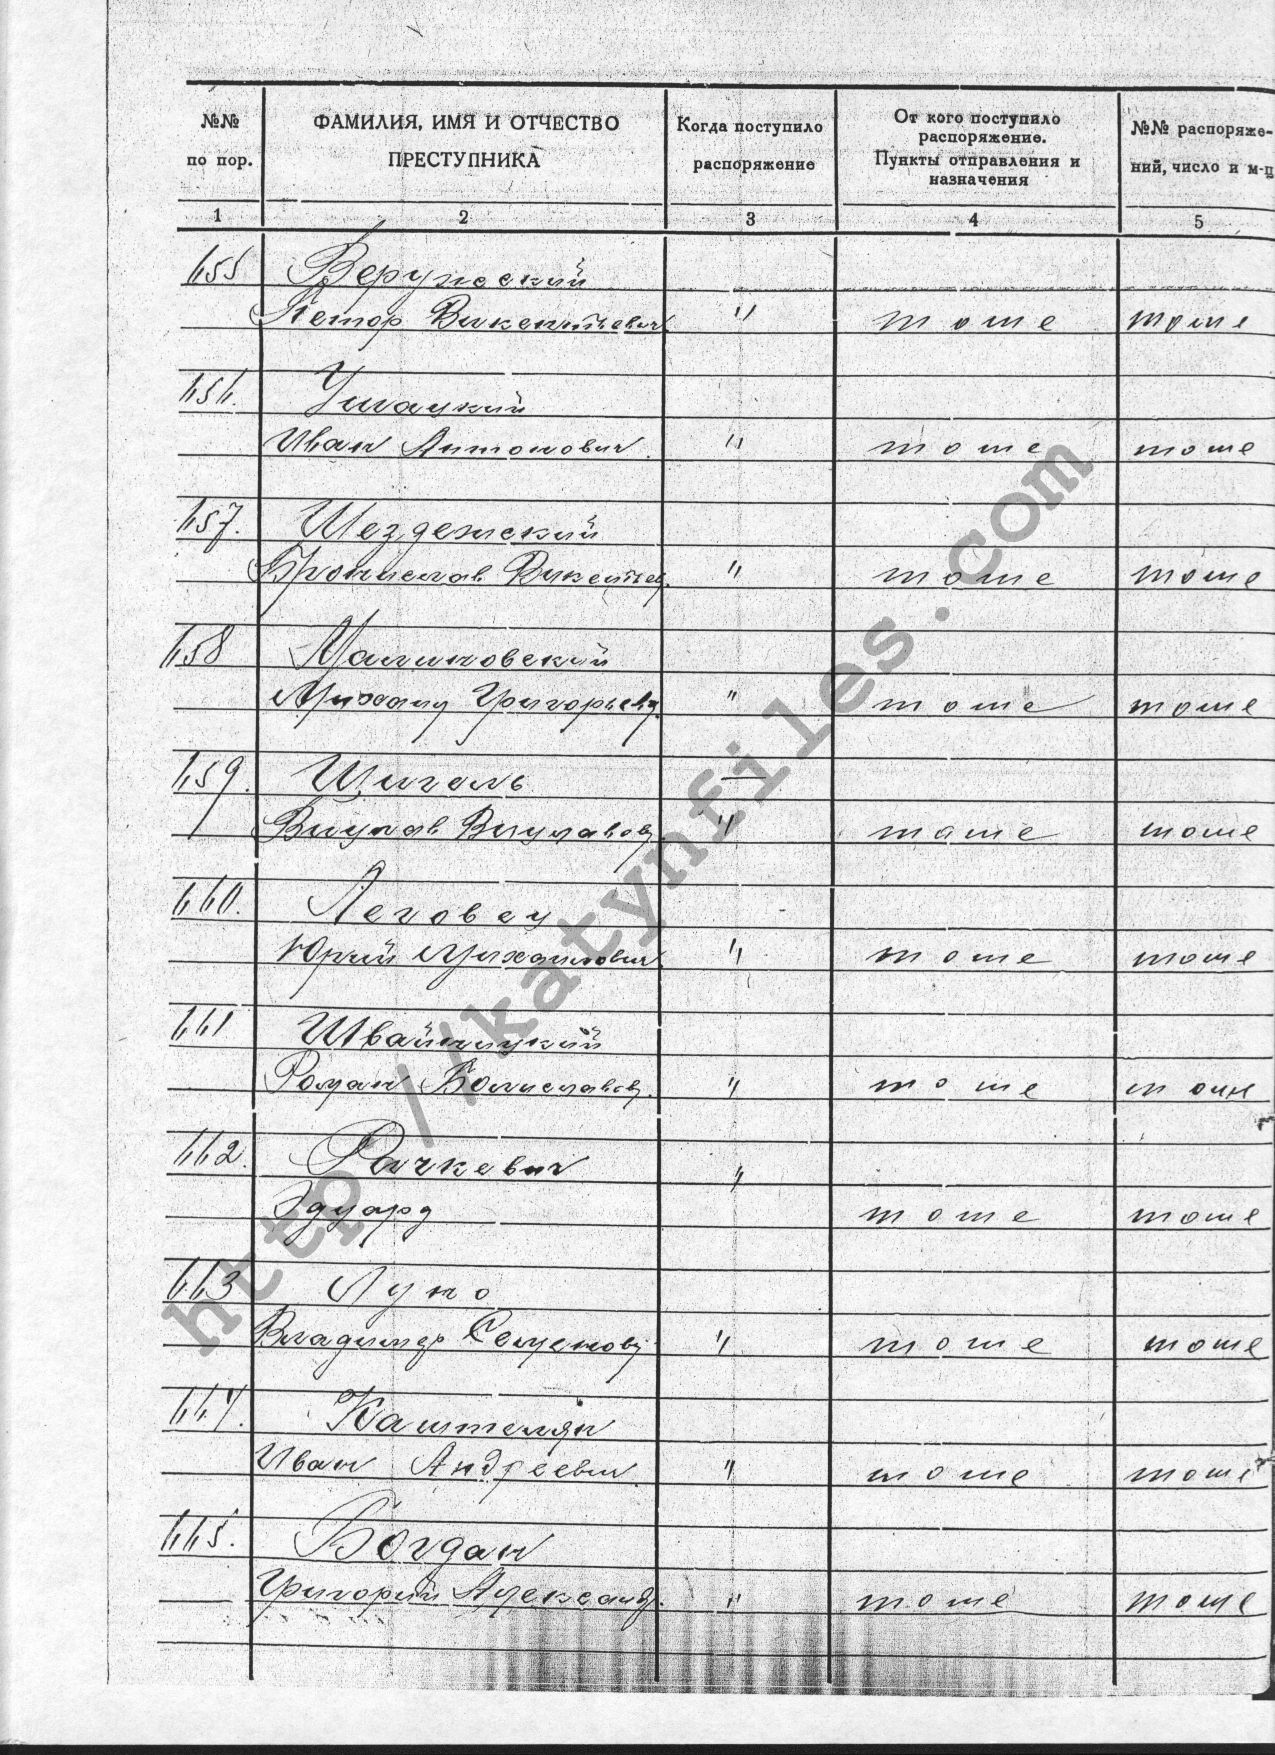 №№ по пор.
ФАМИЛИЯ, ИМЯ И ОТЧЕСТВО ПРЕСТУПНИКА
Когда поступило распоряжение
От кого поступило распоряжение. Пункты отправления и назначения
№№ распоряже-ний, число и м-ц
1 2 3 4 5
655 Веружский
Петор Викентьевич " тоже тоже
656.
Иван Антонович. " тоже тоже
657.
Бронислав Викентьев. " тоже тоже
658 Малиновский
Григорьев. " тоже тоже
659. Шигель —
" тоже тоже
660. Леговец
Юрий Михайлович. " тоже тоже
661
Роман Болиславов. " тоже тоже
662. Рачкевич "
Эдуард тоже тоже
663 Луно
Владимер Семенов. " тоже тоже
664. Каштелян
Иван Андреевич. " тоже тоже
665. Богдан
Григорий Александ. " тоже тоже
http://katynfiles.com